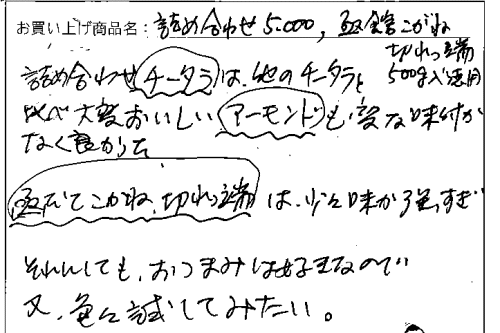 お買い上げ商品名：詰め合わせ5.000，
こがね
切れっ端
500g入 徳用
詰め合わせチータラは、他のチータラと
比べ大変おいしい アーモンドも、変な味付が
なく良かった
こがね、切れっ端 は、少々味が強すぎ
それにしても、おつまみは好きなので
又、色々試してみたい。